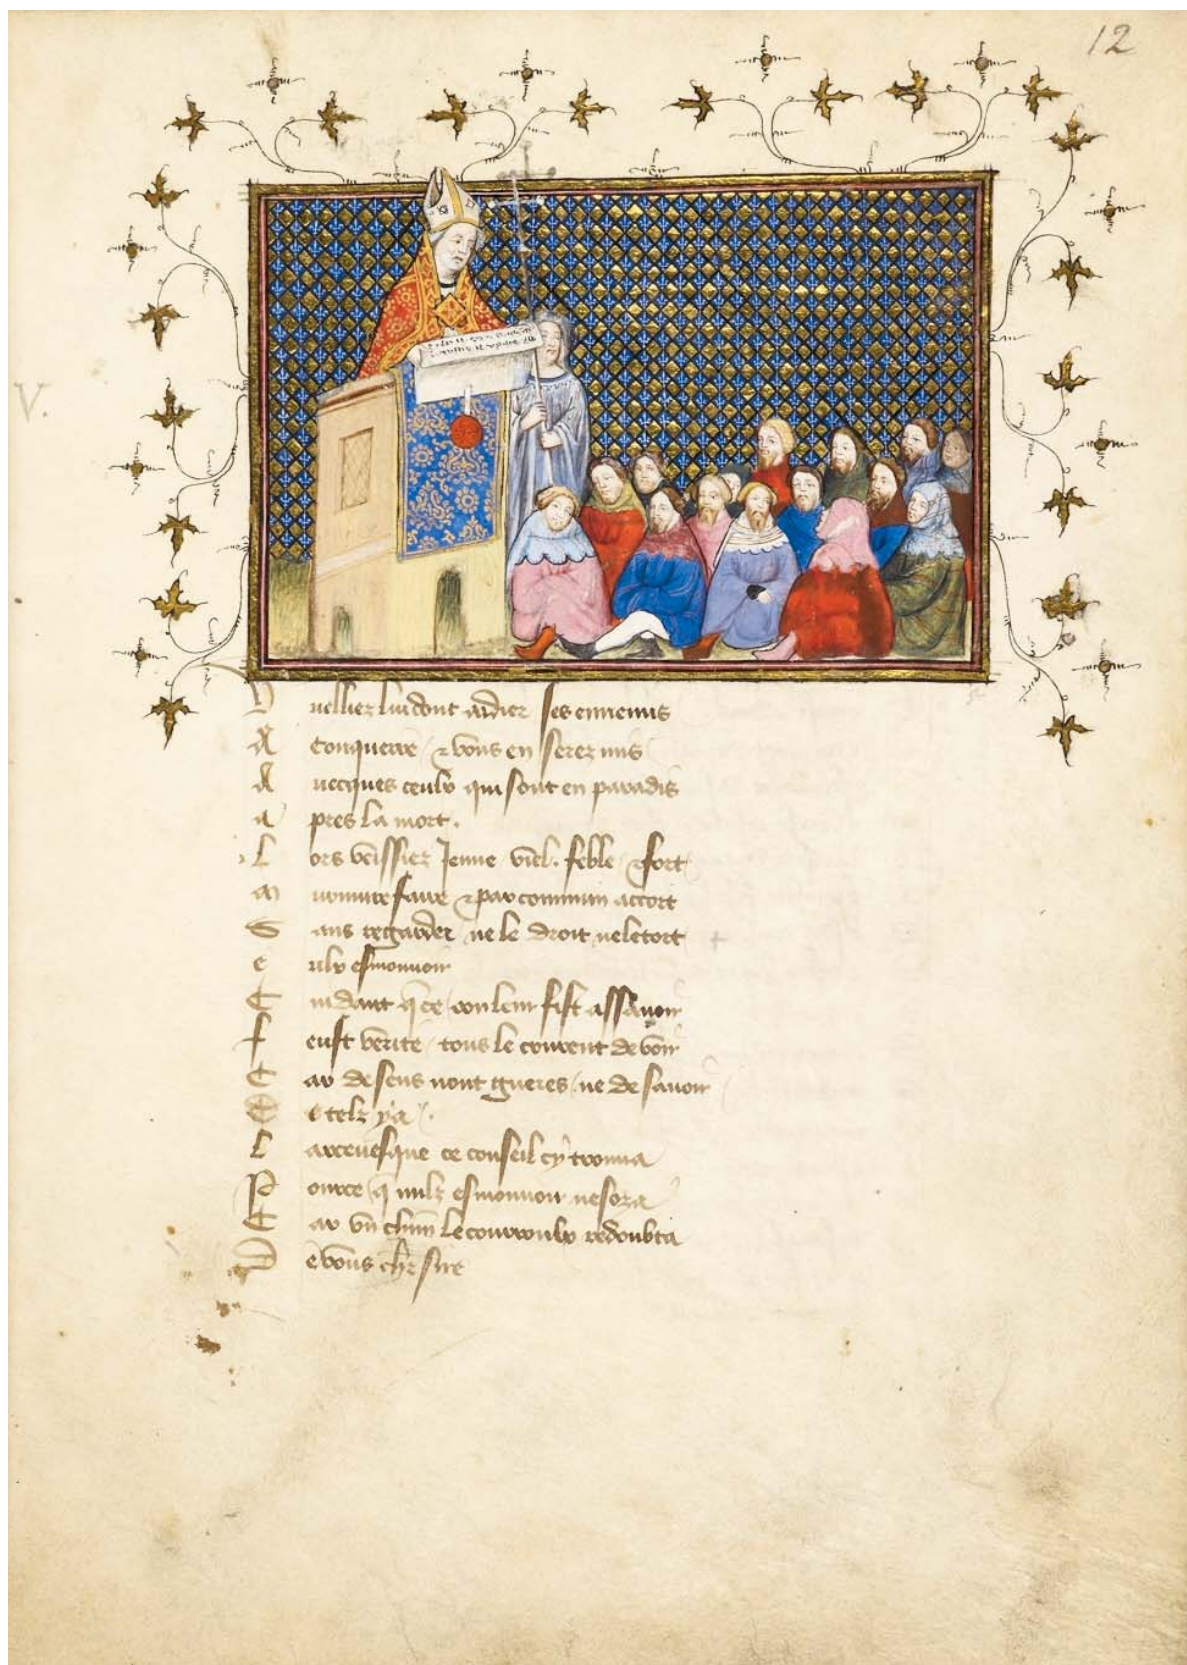 12
V.
V ueilliez lui dont aidier ses ennemis
A Conquerre / & vous en serez mis
A uecques ceulx qui sont en paradis
a pres la mort .
L ors veissiez Jenne viel . feble / & fort
m urmure faire & par commun accort
S ans regarder ne le droit ne le tort
e ulx esmouvoir
C uidant q̄ ce / con leur fist assauoir
f eust verite / tous le courent de voir
C ar de sens nont gueres / ne de sauoir
E t telz y a / .
L arceuesque ce conseil cy trouua
P ource / q̄ nulz esmouuoir ne soza
C ar vn chūn le courroulx redoubta
D e vous ch̄r sire